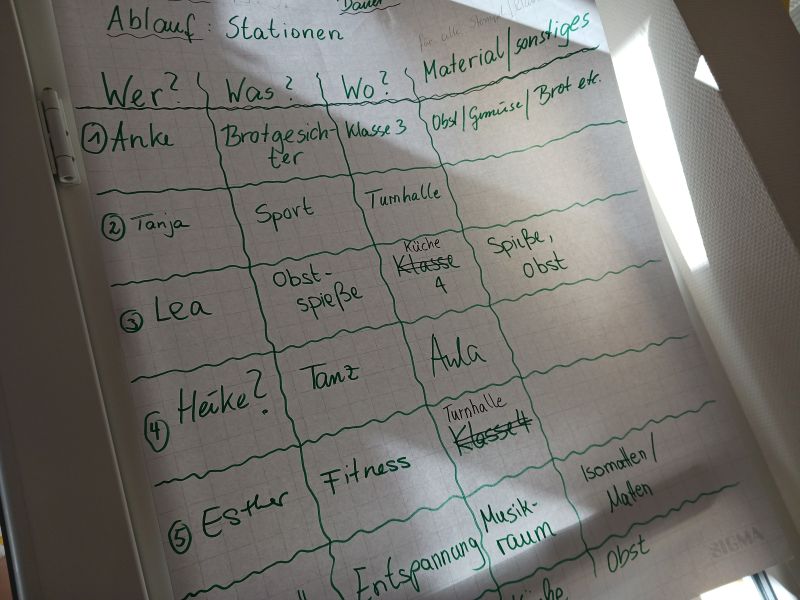 Dauer
Ablauf: Stationen
für alle:
Wer? Was? Wo? Material/sonstiges
① Anke Brotgesich-
ter Klasse 3 Obst/Gemüse/Brot etc.
② Tanja Sport Turnhalle
③ Lea Obst-
spieße Küche
Klasse
4 Spieße,
Obst
④ Heike? Tanz Aula
⑤ Esther Fitness Turnhalle
Klasse 4
Entspannung Musik-
raum Isomatten/
Matten
Küche Obst
SIGMA